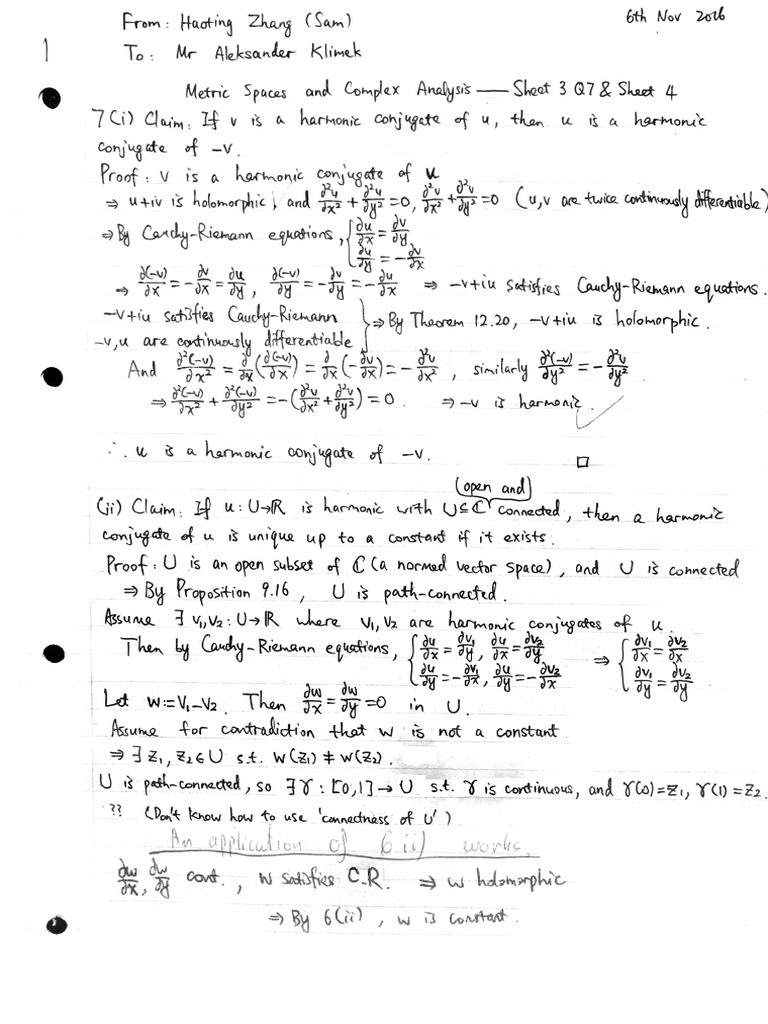 From: Haoting Zhang (Sam)
6th Nov 2016
1
To: Mr Aleksander Klimek
Metric Spaces and Complex Analysis — Sheet 3 Q7 & Sheet 4
7(i) Claim: If v is a harmonic conjugate of u, then u is a harmonic
conjugate of -v.
Proof: v is a harmonic conjugate of u
⇒ u+iv is holomorphic, and ∂²u/∂x² + ∂²u/∂y² = 0, ∂²v/∂x² + ∂²v/∂y² = 0 (u,v are twice continuously differentiable)
⇒ By Cauchy-Riemann equations, { ∂u/∂x = ∂v/∂y
∂u/∂y = -∂v/∂x
⇒ ∂(-v)/∂x = -∂v/∂x = ∂u/∂y, ∂(-v)/∂y = -∂v/∂y = -∂u/∂x ⇒ -v+iu satisfies Cauchy-Riemann equations.
-v+iu satisfies Cauchy-Riemann
-v,u are continuously differentiable } ⇒ By Theorem 12.20, -v+iu is holomorphic.
And ∂²(-v)/∂x² = ∂/∂x(∂(-v)/∂x) = ∂/∂x(-∂v/∂x) = -∂²v/∂x², similarly ∂²(-v)/∂y² = -∂²v/∂y²
⇒ ∂²(-v)/∂x² + ∂²(-v)/∂y² = -(∂²v/∂x² + ∂²v/∂y²) = 0. ⇒ -v is harmonic.
∴ u is a harmonic conjugate of -v. □
(open and)
(ii) Claim: If u: U→ℝ is harmonic with U⊆ℂ connected, then a harmonic
conjugate of u is unique up to a constant if it exists.
Proof: U is an open subset of ℂ (a normed vector space), and U is connected
⇒ By Proposition 9.16, U is path-connected.
Assume ∃ v₁,v₂: U→ℝ where v₁,v₂ are harmonic conjugates of u.
Then by Cauchy-Riemann equations, { ∂u/∂x = ∂v₁/∂y, ∂u/∂x = ∂v₂/∂y ⇒ { ∂v₁/∂x = ∂v₂/∂x
∂u/∂y = -∂v₁/∂x, ∂u/∂y = -∂v₂/∂x ∂v₁/∂y = ∂v₂/∂y
Let w:=v₁-v₂. Then ∂w/∂x = ∂w/∂y = 0 in U.
Assume for contradiction that w is not a constant
⇒ ∃ z₁, z₂∈U s.t. w(z₁) ≠ w(z₂).
U is path-connected, so ∃ γ: [0,1]→U s.t. γ is continuous, and γ(0)=z₁, γ(1)=z₂.
?? (Don't know how to use 'connectness of U')
An application of 6 ii) works.
∂w/∂x, ∂w/∂y cont., w satisfies C.R. ⇒ w holomorphic
⇒ By 6(ii), w is constant.